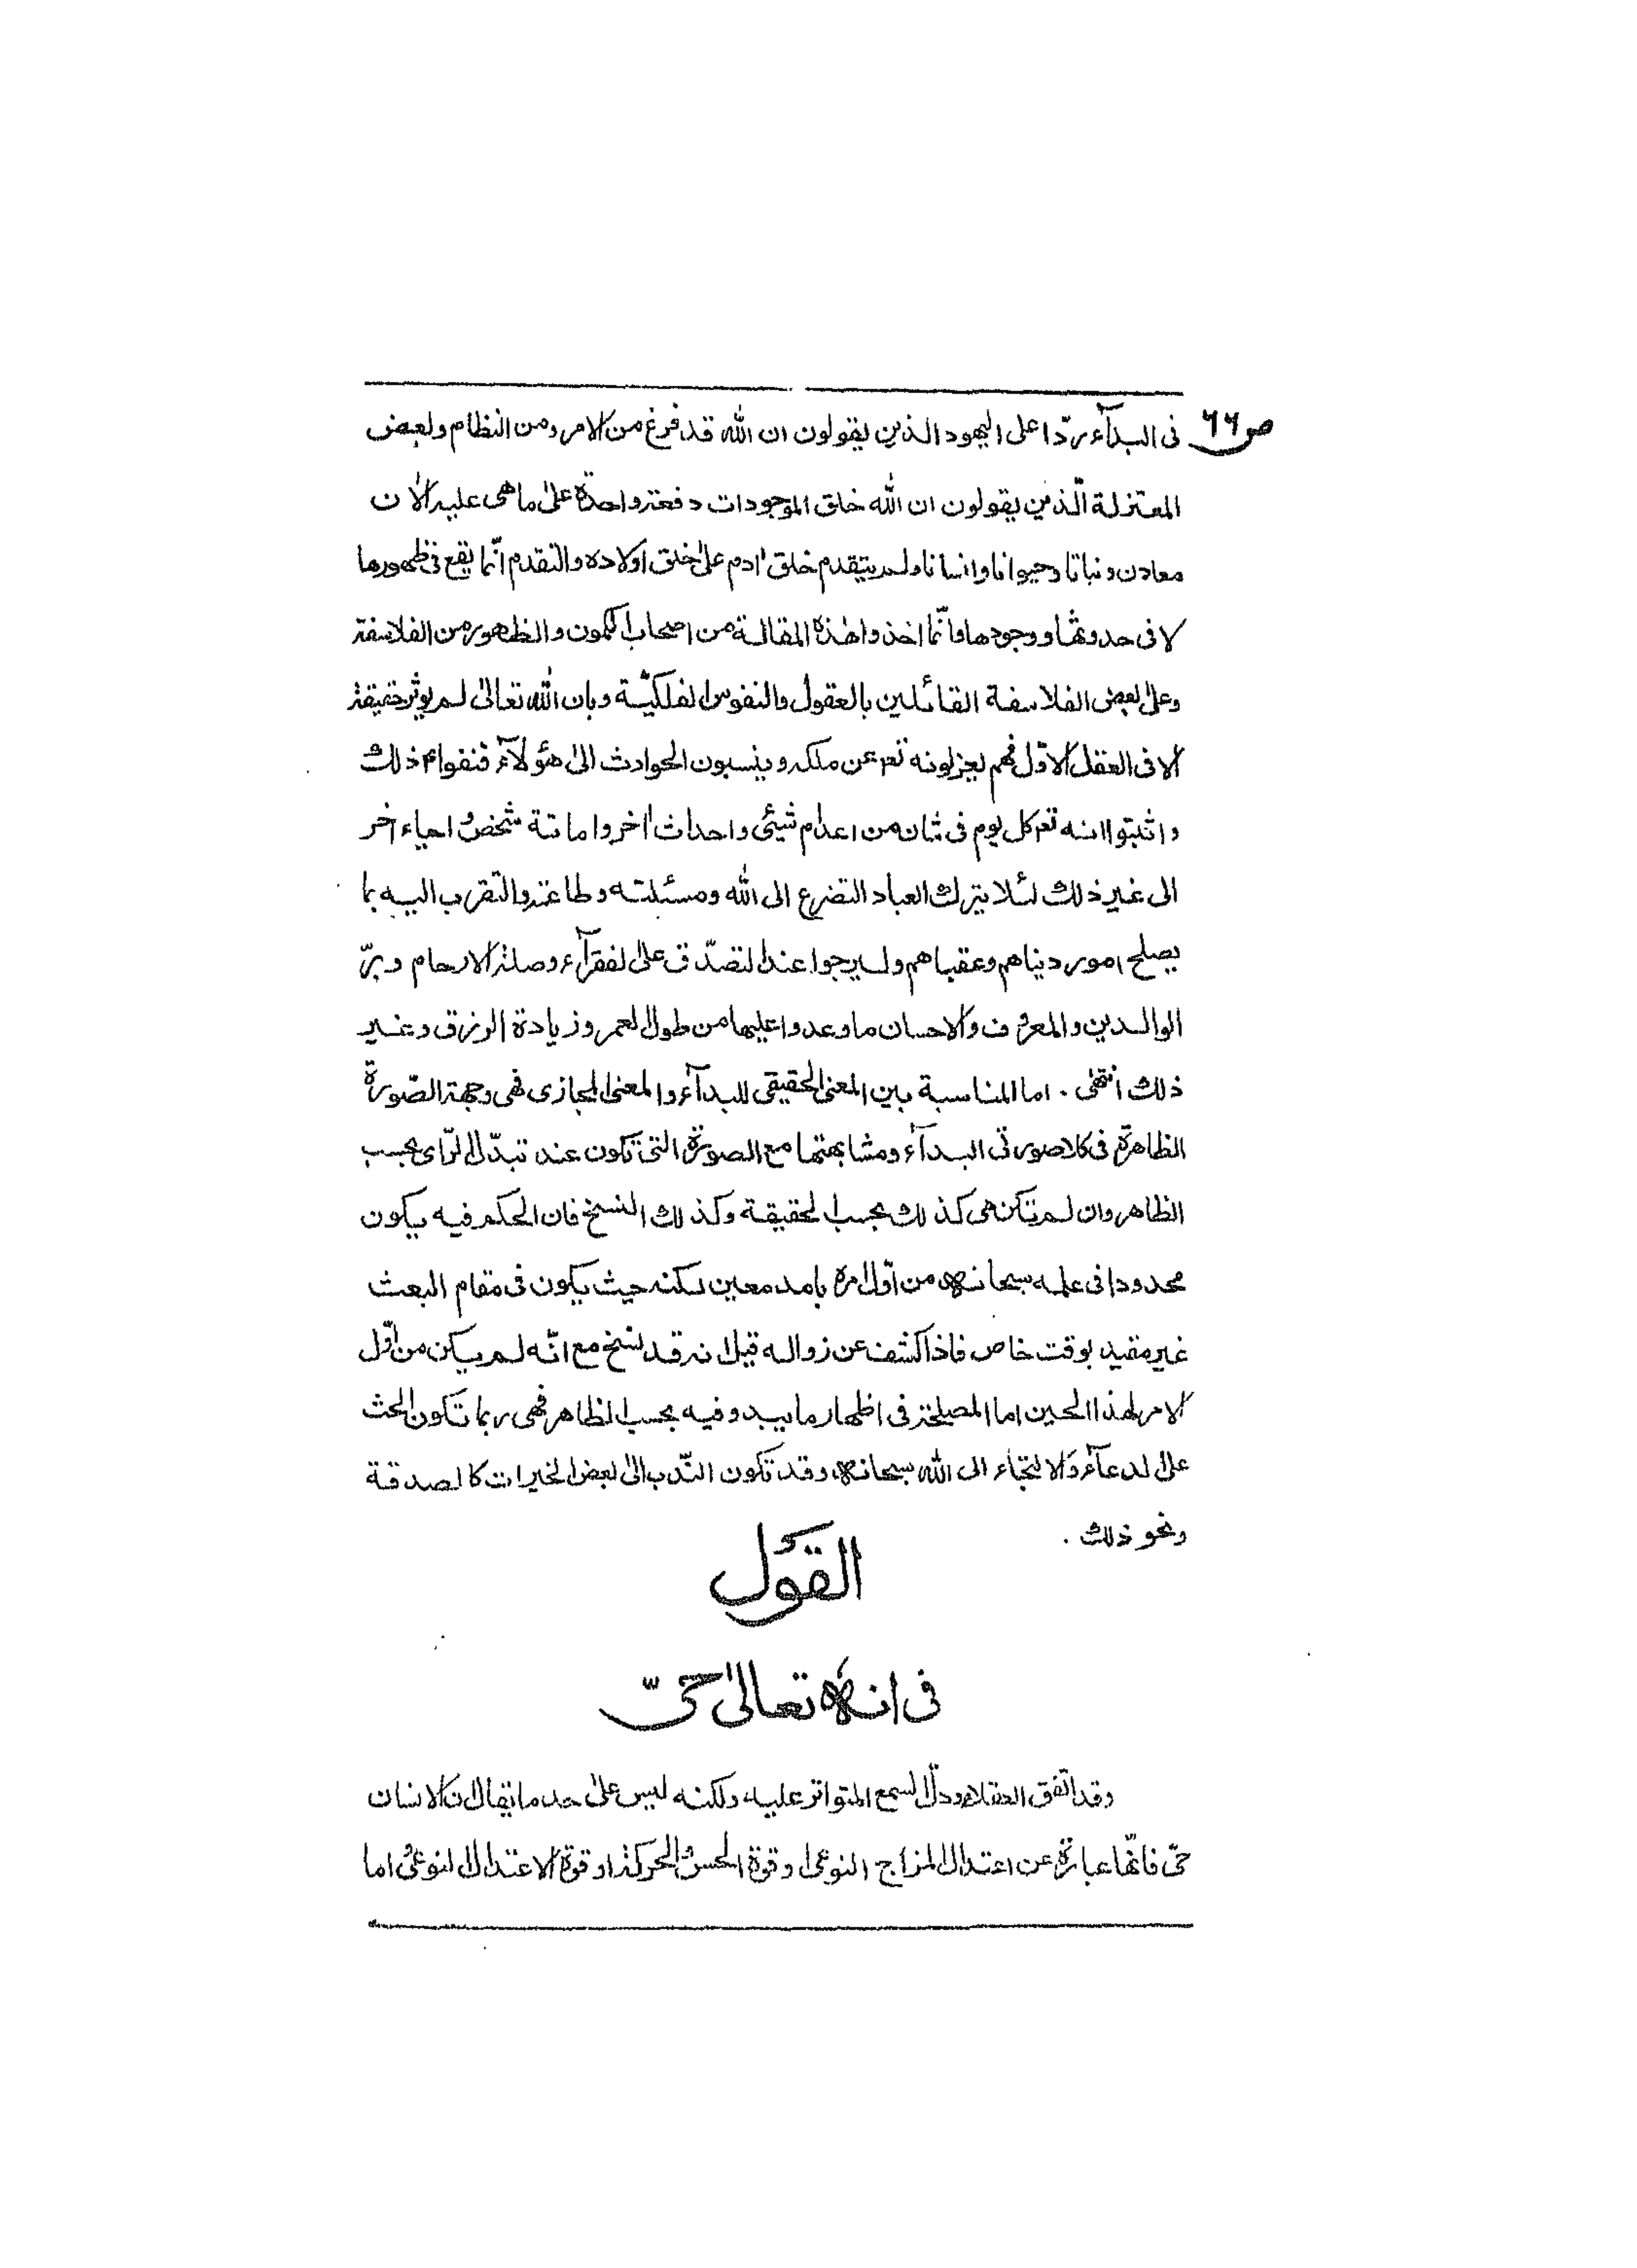 ص ٦٦
فى البدآء ردّا على اليهود الذين يقولون ان الله قد فرغ من الامر ومن النظام ولبعض
المعتزلة الّذين يقولون ان الله خلق الموجودات دفعة واحدة على ما هى عليه الآن
معادن ونباتا وحيوانا وانسانا ولم يتقدم خلق ادم على خلق اولاده والتقدم انّما يقع فى ظهورها
لا فى حدوثها ووجودها وانّما اخذوا هذه المقالة من اصحاب الكمون والظهور من الفلاسفة
وعلى بعض الفلاسفة القائلين بالعقول والنفوس الفلكيّة وبان الله تعالى لم يوثر حقيقة
الا فى العقل الاوّل فهم يعزلونه تعـ عن ملكه وينسبون الحوادث الى هؤلآء فنفوا ع ذلك
واثبتوا انه تعـ كل يوم فى شان من اعدام شيئى واحداث اخر واماتة شخص واحياء اخر
الى غير ذلك لئلا يترك العباد التضرع الى الله ومسئلته وطاعته والتقرب اليه بما
يصلح امور دنياهم وعقباهم وليرجوا عند التصدّق على الفقرآء وصلة الارحام وبرّ
الوالدين والمعروف والاحسان ما وعدوا عليها من طول العمر وزيادة الرزق وغير
ذلك انتهى . اما المناسبة بين المعنى الحقيقى للبدآء والمعنى المجازى فهى وجهة الصّورة
الظاهرة فى كلا صورتى البدآء ومشابهتها مع الصورة التى تكون عند تبدّل الرّاى بحسب
الظاهر وان لم تكن هى كذلك بحسب الحقيقة وكذلك النسخ فان الحكم فيه يكون
محدودا فى علمه سبحانه من اوّل مرة بامد معين لكنه حيث يكون فى مقام البعث
غير مقيد بوقت خاص فاذا كشف عن زواله قيل انه قد نسخ مع انّه لم يكن من اوّل
الامر لهذا الحين اما المصلحة فى اظهار ما يبدو فيه بحسب الظاهر فهى ربما تكون الحث
على الدعآء والالتجاء الى الله سبحانه وقد تكون النّدب الى بعض الخيرات كالصدقة
ونحو ذلك .
القول
فى انه تعالى حىّ
وقد اتّفق العقلاء ودلّ السمع المتواتر عليه ولكنه ليس على حد ما يقال ان الانسان
حىّ فانّها عبارة عن اعتدال المزاج النوعى او قوة الحس والحركة او قوة الاعتدال النوعى اما